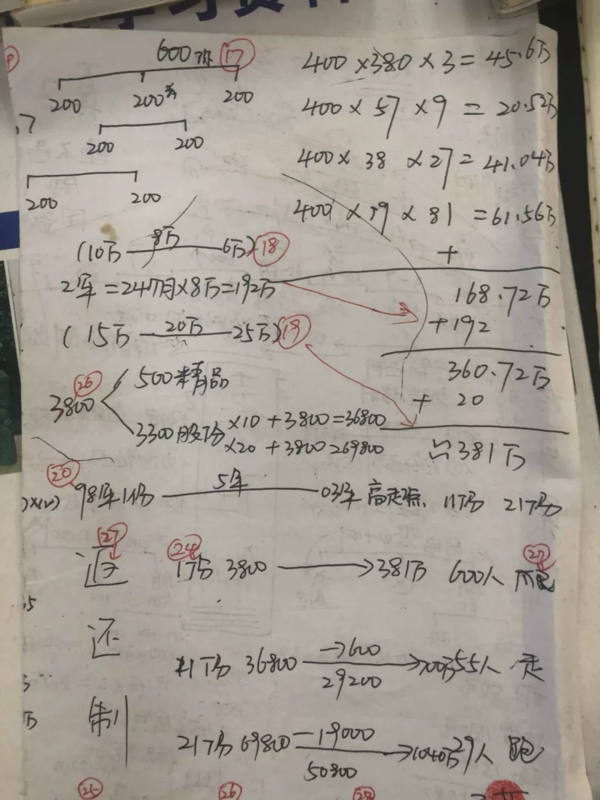 600份 ⑰
200 200份 200
200 200
200 200
400×380×3=45.6万
400×57×9=20.52万
400×38×27=41.04万
400×19×81=61.56万
+
(10万 8万 6万) ⑱
2年=24个月×8万=192万
168.72万
+192
(15万 20万 25万) ⑲
360.72万
+20
≌381万
3800
500精品
3300股份 ×10+3800=36800
×20+3800=69800
⑳ 98年1份 5年 03年 11份 21份
㉗ 退
还
制
㉔ 1份 3800 → 381万 600人
11份 36800 →7600 29200 55人 走
21份 69800 —19000 50800 →1040万 29人 跑
㉕ ㉖